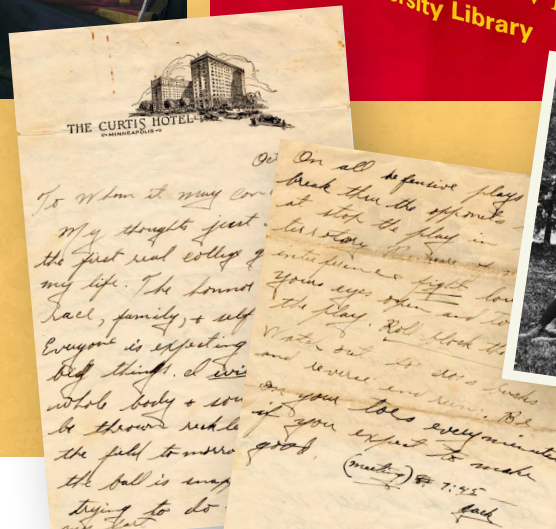 ersity Library
THE CURTIS HOTEL
MINNEAPOLIS
Oct
To Whom it may con
My thoughts just
the first real college g
my life. The honnor
race, family, & self
Everyone is expecting
big things. I
whole body & sou
be thrown reckle
the field tomorro
the ball is snap
trying to do
my part
On all defensive plays
break thru the opponents
at stop the play in
territory
interference fight low
your eyes open and
the play. Roll block the
Watch out for
and reverse end runs. Be
on your toes every minute
if you expect to make
good.
(meeting) 7:45
Jack